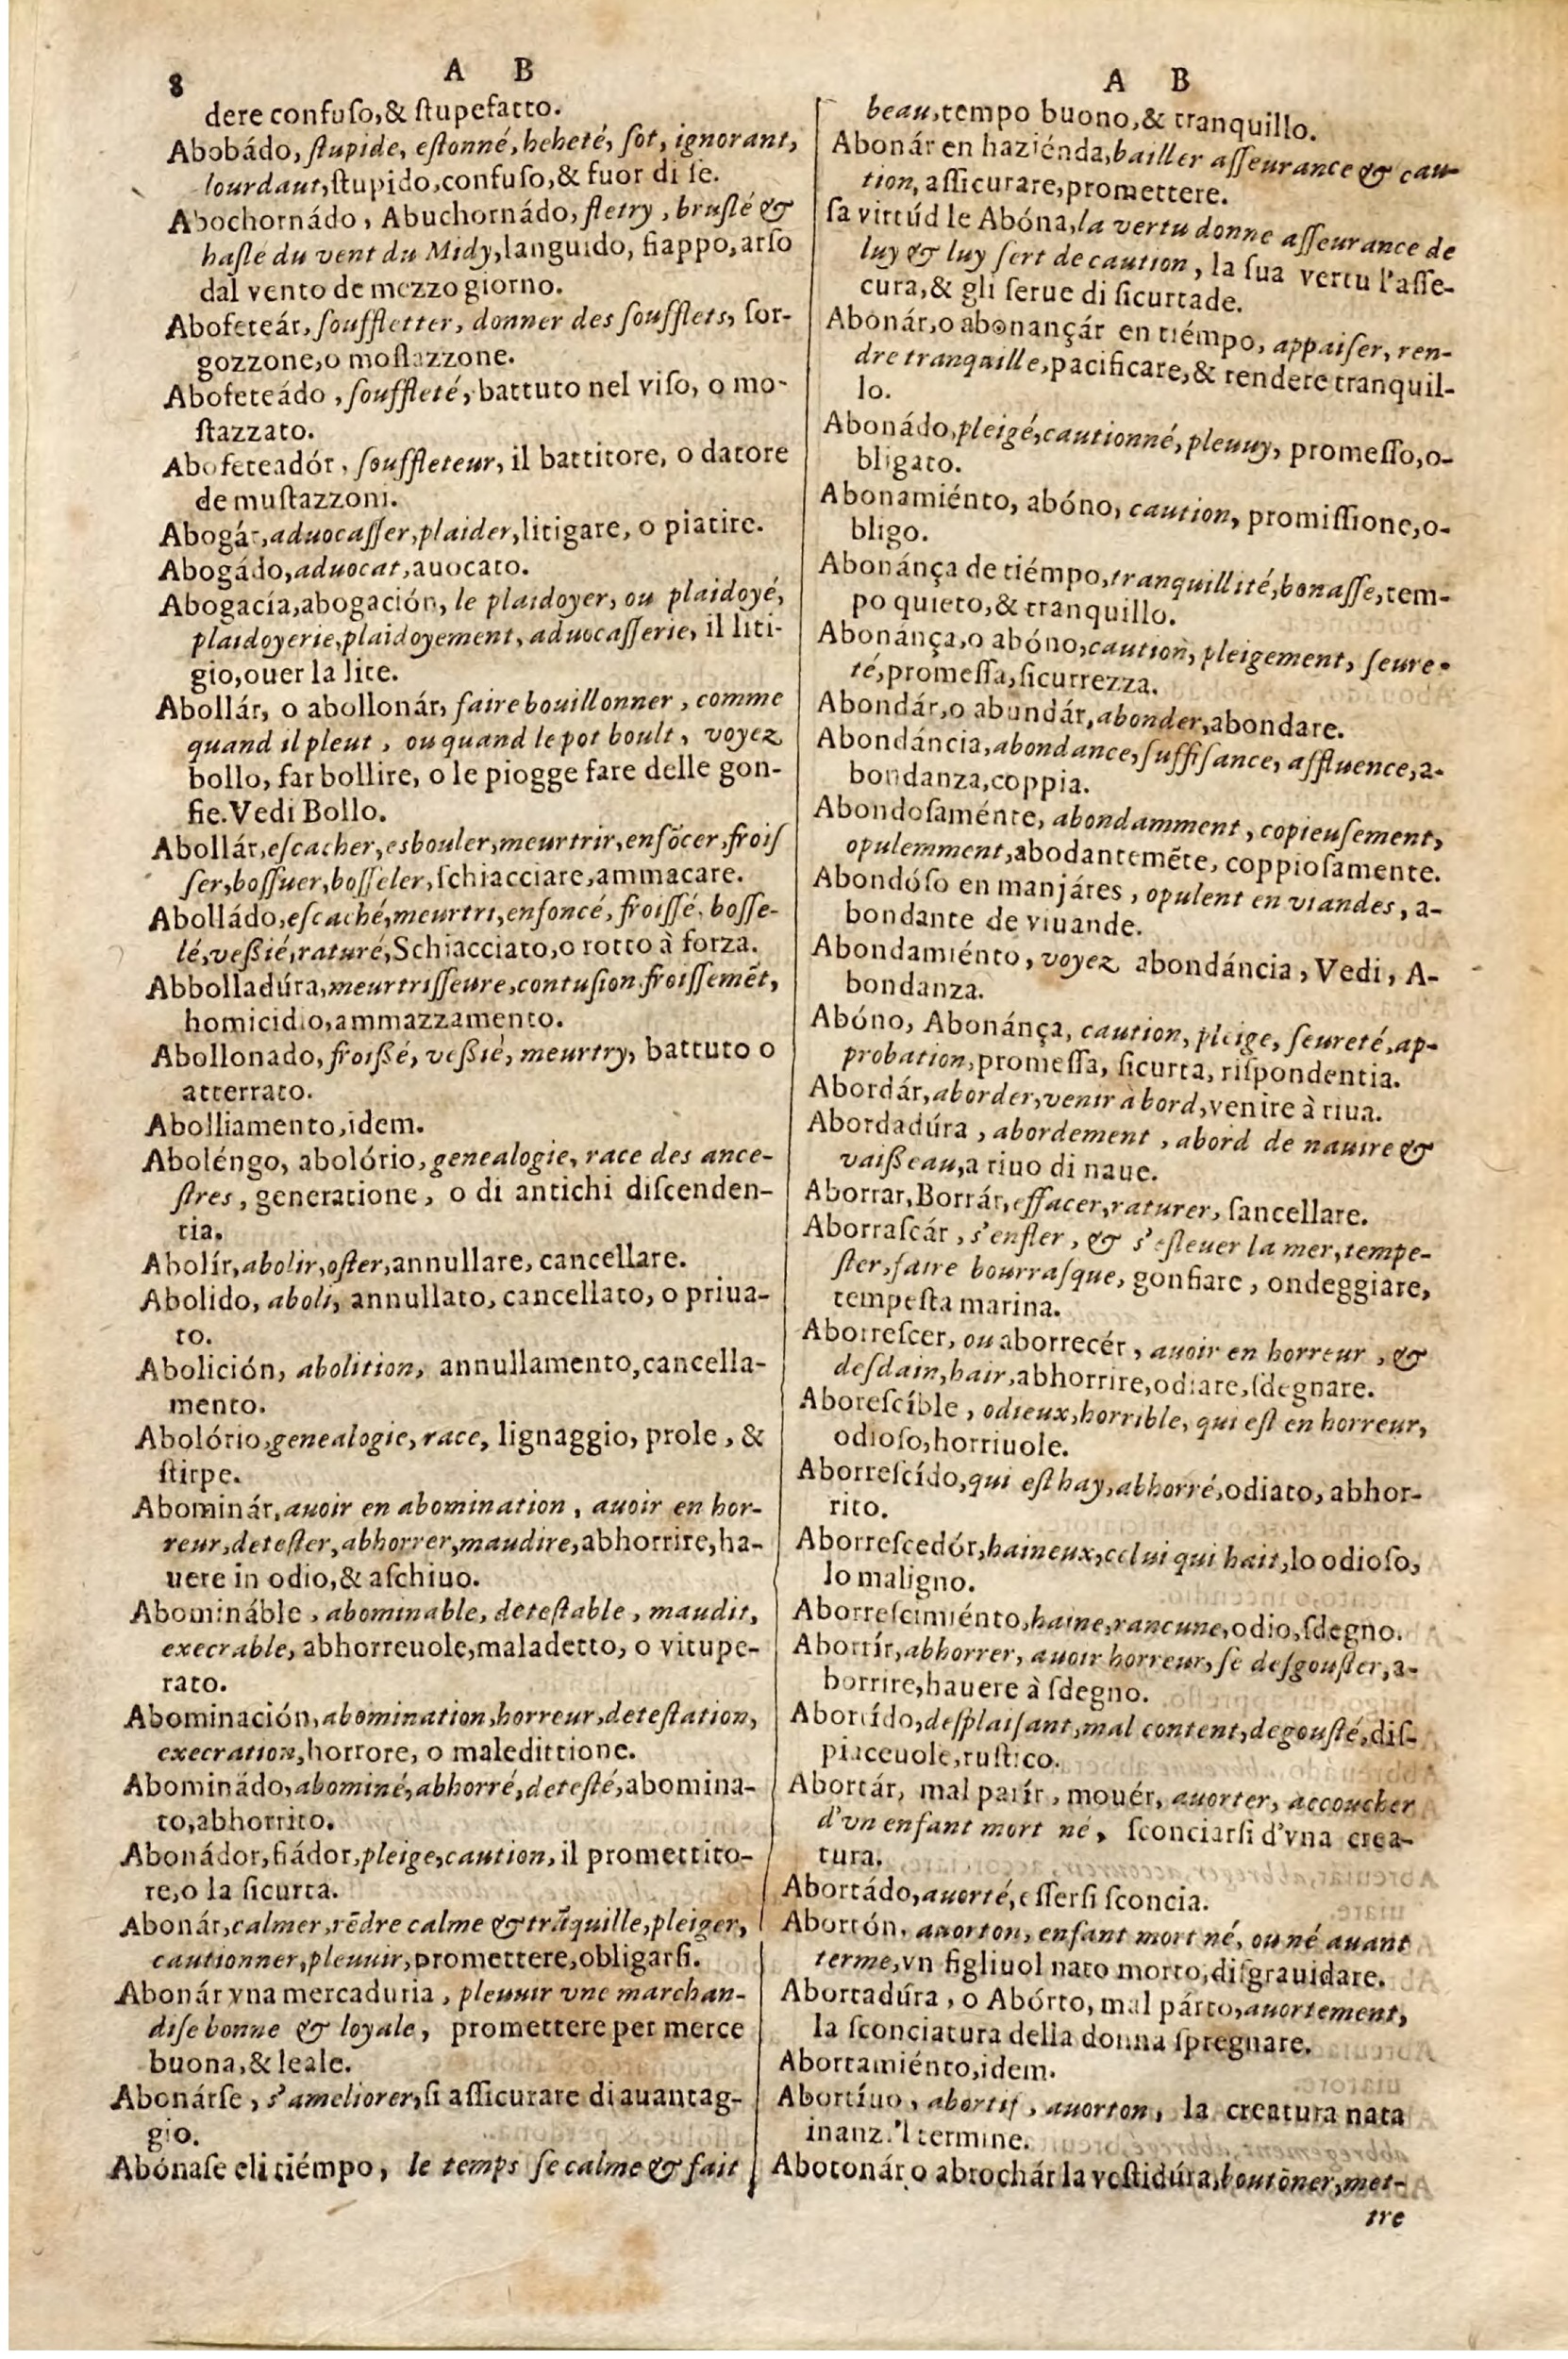 8
A B
dere confuſo,& ſtupefatto.
Abobádo, ſtupide, eſtonné, hebeté, ſot, ignorant,
lourdaut, ſtupido, confuſo,& fuor di ſe.
Abochornádo, Abuchornádo, fletry, bruſlé &
haſlé du vent du Midy, languido, fiappo, arſo
dal vento de mezzo giorno.
Abofeteár, ſouffletter, donner des ſoufflets, ſor-
gozzone, o moſtazzone.
Abofeteádo, ſouffleté, battuto nel viſo, o mo-
ſtazzato.
Abofeteadór, ſouffleteur, il battitore, o datore
de muſtazzoni.
Abogár, aduocaſſer, plaider, litigare, o piatire.
Abogádo, aduocat, auocato.
Abogacía, abogación, le plaidoyer, ou plaidoyé,
plaidoyerie, plaidoyement, aduocaſſerie, il liti-
gio, ouer la lite.
Abollár, o abollonár, faire bouillonner, comme
quand il pleut, ou quand le pot boult, voyez
bollo, far bollire, o le piogge fare delle gon-
fie. Vedi Bollo.
Abollár, eſcacher, esbouler, meurtrir, enfõcer, froiſ
ſer, boſſuer, boſſeler, ſchiacciare, ammacare.
Abolládo, eſcaché, meurtri, enfoncé, froiſſé, boſſe-
lé, veßié, raturé, Schiacciato, o rotto à forza.
Abbolladúra, meurtriſſeure, contuſion, froiſſemẽt,
homicidio, ammazzamento.
Abollonado, froißé, veßié, meurtry, battuto o
atterrato.
Abolliamento, idem.
Aboléngo, abolório, genealogie, race des ance-
ſtres, generatione, o di antichi diſcenden-
tia.
Abolír, abolir, oſter, annullare, cancellare.
Abolido, aboli, annullato, cancellato, o priua-
to.
Abolición, abolition, annullamento, cancella-
mento.
Abolório, genealogie, race, lignaggio, prole, &
ſtirpe.
Abominár, auoir en abomination, auoir en hor-
reur, deteſter, abhorrer, maudire, abhorrire, ha-
uere in odio,& aſchiuo.
Abomináble, abominable, deteſtable, maudit,
execrable, abhorreuole, maladetto, o vitupe-
rato.
Abominación, abomination, horreur, deteſtation,
execration, horrore, o maledittione.
Abominádo, abominé, abhorré, deteſté, abomina-
to, abhorrito.
Abonádor, fiádor, pleige, caution, il promettito-
re, o la ſicurta.
Abonár, calmer, rẽdre calme & trãquille, pleiger,
cautionner, pleuuir, promettere, obligarſi.
Abonár vna mercaduria, pleuuir vne marchan-
diſe bonne & loyale, promettere per merce
buona,& leale.
Abonárſe, s'ameliorer, ſi aſſicurare di auantag-
gio.
Abónaſe eli tiémpo, le temps ſe calme & fait
A B
beau, tempo buono,& tranquillo.
Abonár en haziénda, bailler aſſeurance & cau-
tion, aſſicurare, promettere.
ſa virtúd le Abóna, la vertu donne aſſeurance de
luy & luy ſert de caution, la ſua vertu l'aſſe-
cura,& gli ſerue di ſicurtade.
Abonár, o abonançár en tiémpo, appaiſer, ren-
dre tranquille, pacificare,& rendere tranquil-
lo.
Abonádo, pleigé, cautionné, pleuuy, promeſſo, o-
bligato.
Abonamiénto, abóno, caution, promiſſione, o-
bligo.
Abonánça de tiémpo, tranquillité, bonaſſe, tem-
po quieto,& tranquillo.
Abonánça, o abóno, caution, pleigement, ſeure-
té, promeſſa, ſicurrezza.
Abondár, o abundár, abonder, abondare.
Abondáncia, abondance, ſuffiſance, affluence, a-
bondanza, coppia.
Abondoſaménte, abondamment, copieuſement,
opulemment, abodantemẽte, coppioſamente.
Abondóſo en manjáres, opulent en viandes, a-
bondante de viuande.
Abondamiénto, voyez abondáncia, Vedi, A-
bondanza.
Abóno, Abonánça, caution, pleige, ſeureté, ap-
probation, promeſſa, ſicurta, riſpondentia.
Abordár, aborder, venir à bord, venire à riua.
Abordadúra, abordement, abord de nauire &
vaißeau, a riuo di naue.
Aborrar, Borrár, effacer, raturer, ſancellare.
Aborraſcár, s'enfler, & s'eſleuer la mer, tempe-
ſter, faire bourraſque, gonfiare, ondeggiare,
tempeſta marina.
Aborreſcer, ou aborrecér, auoir en horreur, &
deſdain, hair, abhorrire, odiare, ſdegnare.
Aboreſcíble, odieux, horrible, qui eſt en horreur,
odioſo, horriuole.
Aborreſcído, qui eſt hay, abhorré, odiato, abhor-
rito.
Aborreſcedór, haineux, celui qui hait, lo odioſo,
lo maligno.
Aborreſcimiénto, haine, rancune, odio, ſdegno.
Aborrír, abhorrer, auoir horreur, ſe deſgouſter, a-
borrire, hauere à ſdegno.
Aborrído, deſplaiſant, mal content, degouſté, diſ-
piaceuole, ruſtico.
Abortár, mal parír, mouér, auorter, accoucher
d'vn enfant mort né, ſconciarſi d'vna crea-
tura.
Abortádo, auorté, eſſerſi ſconcia.
Abortón, auorton, enfant mort né, ou né auant
terme, vn figliuol nato morto, diſgrauidare.
Abortadúra, o Abórto, mal párto, auortement,
la ſconciatura della donna ſpregnare.
Abortamiénto, idem.
Abortíuo, abortif, auorton, la creatura nata
inanz.'l termine.
Abotonár, o abrochár la veſtidúra, boutõner, met-
tre